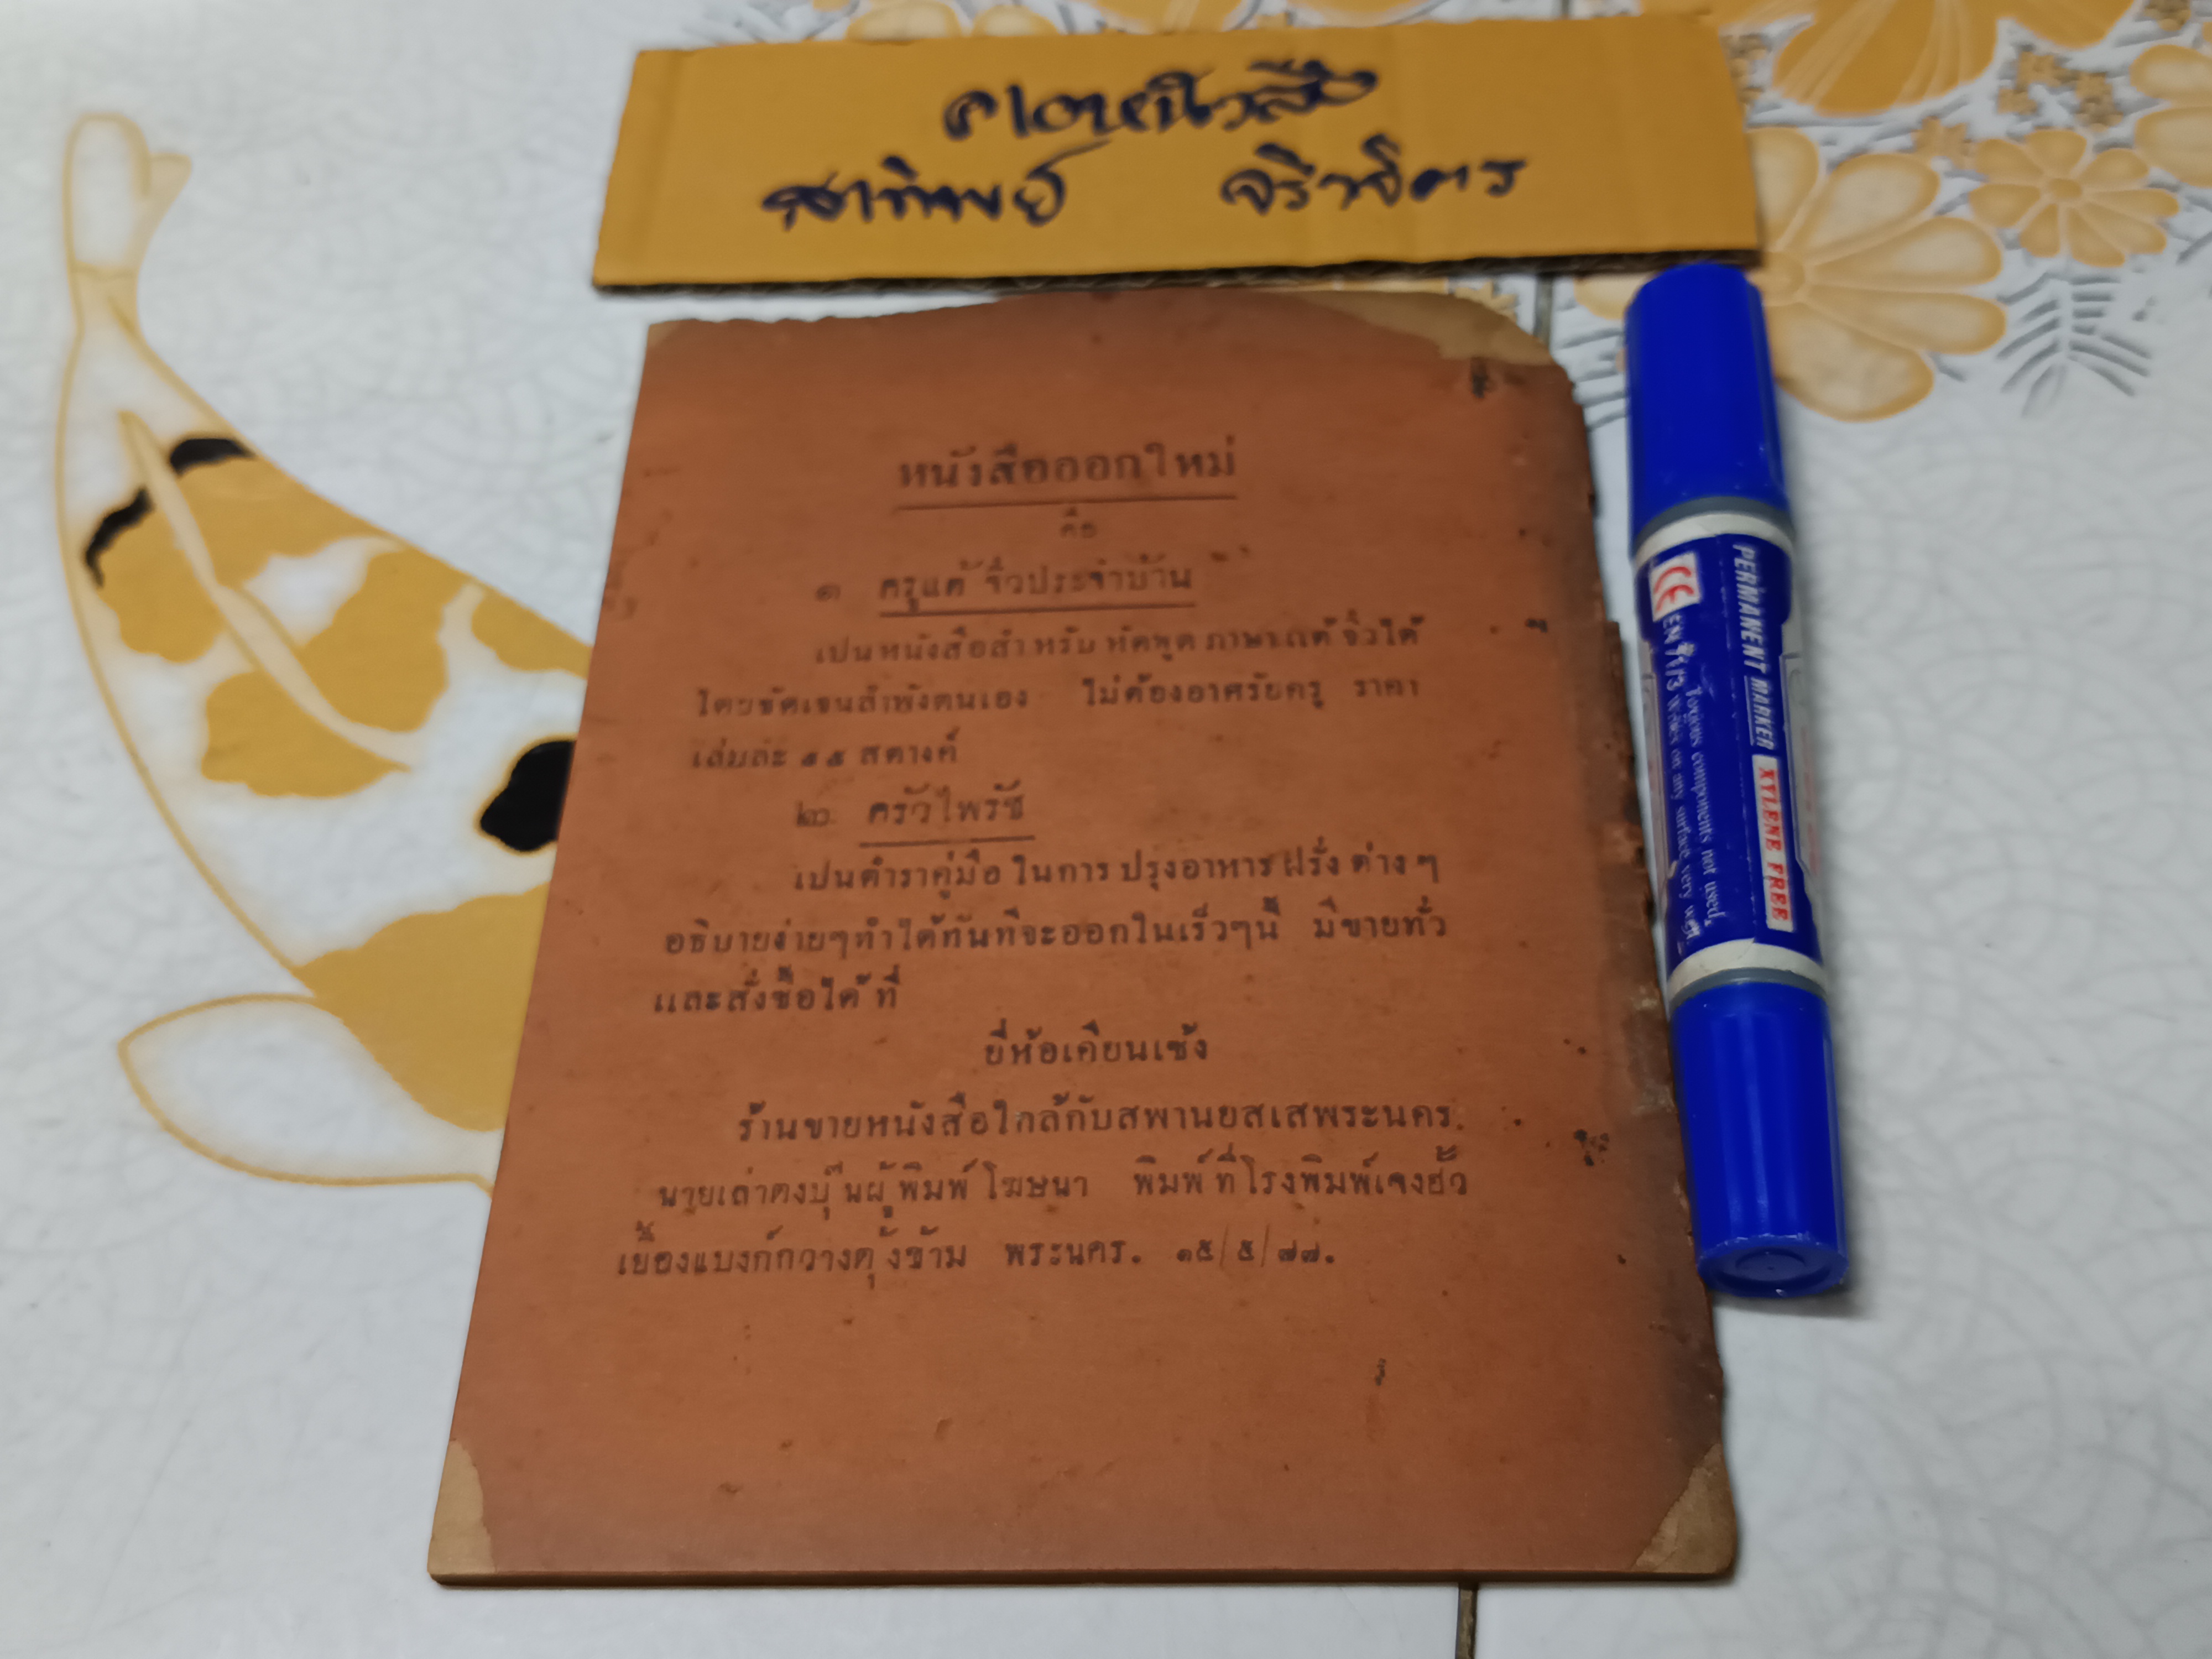 สาทิพย์ จริวจิตร
หนังสือออกใหม่
คือ
๑ ครูแต้จิ๋วประจำบ้าน
เปนหนังสือสำหรับหัดพูดภาษาแต้จิ๋วได้
โดยชัดเจนลำพังตนเอง ไม่ต้องอาศรัยครู ราคา
เล่มละ ๕๕ สตางค์
๒. ครัวไพรัช
เปนตำราคู่มือในการปรุงอาหารฝรั่งต่างๆ
อธิบายง่ายๆทำได้ทันทีจะออกในเร็วๆนี้ มีขายทั่ว
และสั่งซื้อได้ที่
ยี่ห้อเคียนเซ้ง
ร้านขายหนังสือใกล้กับสพานยสเสพระนคร.
นายเล่าตงบุ๊นผู้พิมพ์โฆษนา พิมพ์ที่โรงพิมพ์เจงฮั้ว
เยื้องแบงก์กวางตุ้งข้าม พระนคร. ๑๕/๕/๗๗.
PERMANENT MARKER XYLENE FREE
CE EN 71/3 Toxic components not used.
Writes on any surface very well